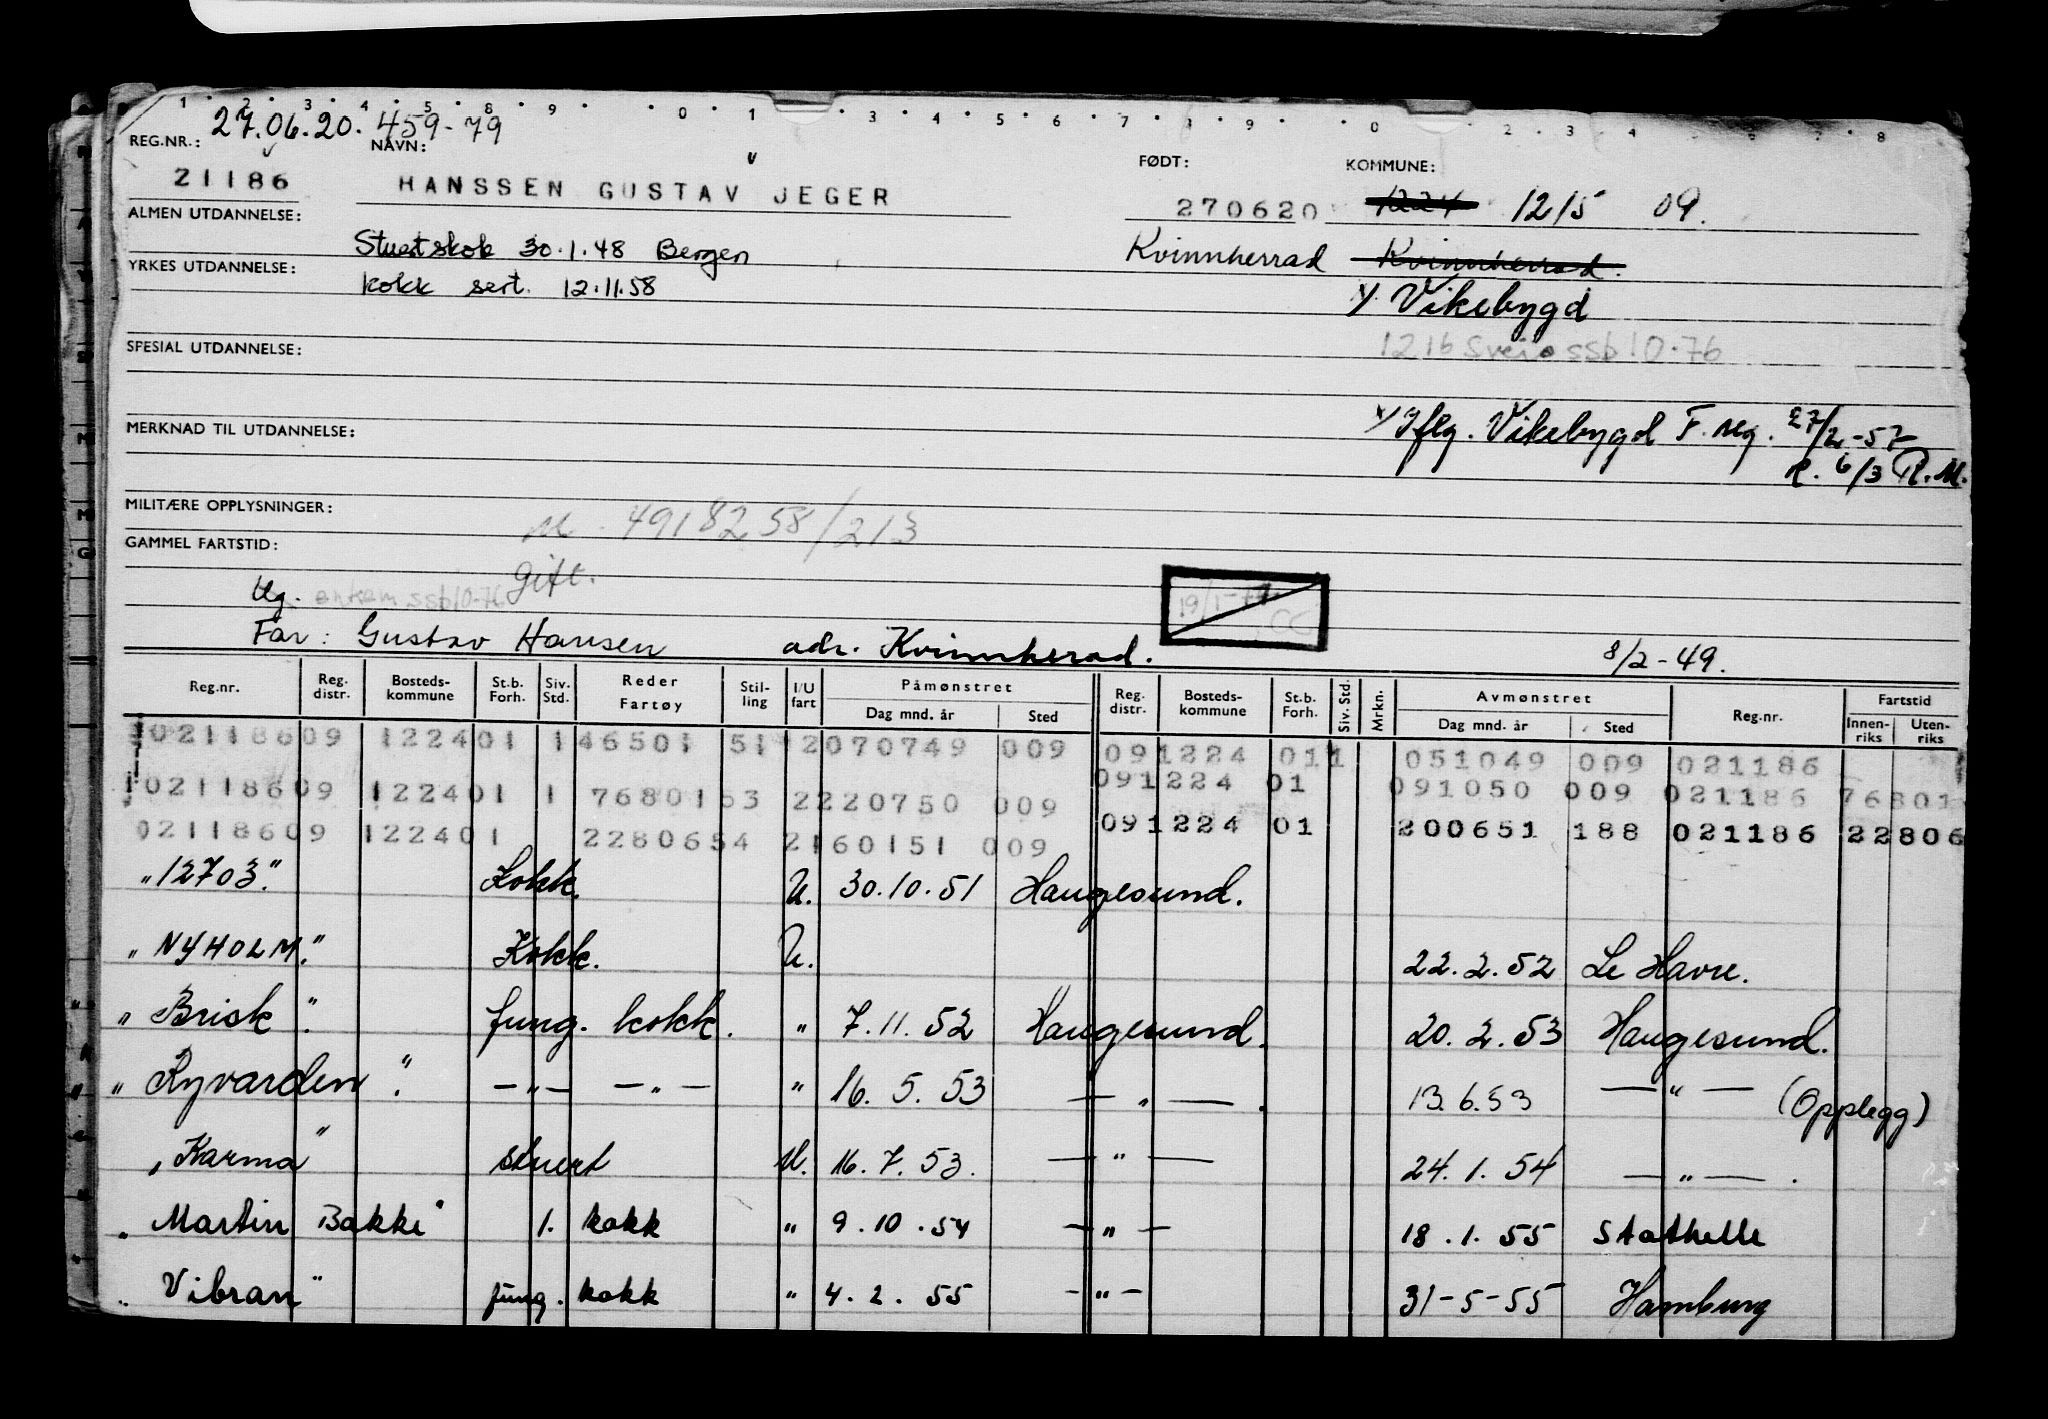 1 2 3 4 5 8 9 0 1 3 4 5 6 7 8 9 0 2 3 4 7 8
27.06.20. 459-79
REG.NR.: NAVN: FØDT: KOMMUNE:
21186 HANSSEN GUSTAV JEGER 270620 1224 1215 09.
ALMEN UTDANNELSE:
Stuertskok 30.1.48 Bergen Kvinnherrad Kvinnherrad.
YRKES UTDANNELSE:
kokk sert. 12.11.58 x/ Vikebygd
SPESIAL UTDANNELSE: 1216 Sveio ssb 10.76
MERKNAD TIL UTDANNELSE: x/ Iflg. Vikebygd F. reg. 27/2-57
R. 6/3 R.M.
MILITÆRE OPPLYSNINGER: M. 4918258/213
GAMMEL FARTSTID:
gift.
Ug. enkem ssb10-76 19/1-77 CC
Far: Gustav Hansen adr. Kvinnherad. 8/2-49.
Reg.nr. Reg. distr. Bosteds-kommune St.b. Forh. Siv. Std. Reder Fartøy Stil-ling I/U fart Påmønstret Dag mnd. år Sted Reg. distr. Bosteds-kommune St.b. Forh. Siv. Std. Mrkn. Avmønstret Dag mnd. år Sted Reg.nr. Fartstid Innen-riks Uten-riks
02118609 122401 146501 51 2070749 009 091224 011 051049 009 021186
02118609 122401 1 7680153 2220750 009 091224 01 091050 009 021186 76801
02118609 122401 2280654 2160151 009 091224 01 200651 188 021186 22806
"12703." Kokk. U. 30.10.51 Haugesund.
"NYHOLM." Kokk. U. 22.2.52 Le Havre.
"Brisk". fung. kokk. " 7.11.52 Haugesund. 20.2.53 Haugesund.
"Ryvarden". —"— —"— " 16.5.53 —"—. 13.6.53 —"— (Opplegg)
"Karma" stuert U. 16.7.53. —"— 24.1.54 —"—.
"Martin Bakke" 1. kokk " 9.10.54 —"— 18.1.55 Stathelle
"Vibran" fung. kokk " 4.2.55 -"- 31-5-55 Hamburg